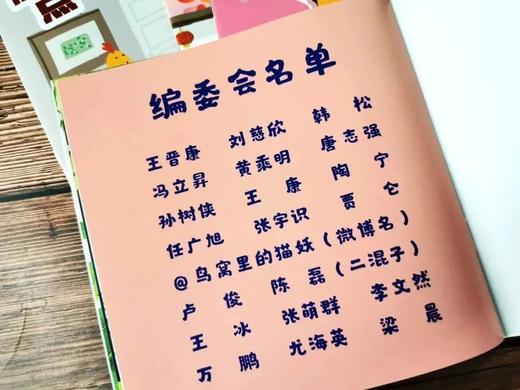 点
编委会名单
王晋康 刘慈欣 韩 松
冯立昇 黄乘明 唐志强
孙树侠 王 康 陶 宁
任广旭 张宇识 贾 仑
@鸟窝里的猫妖（微博名）
卢 俊 陈 磊（二混子）
王 冰 张萌群 李文然
万 鹏 尤海英 梁 晨